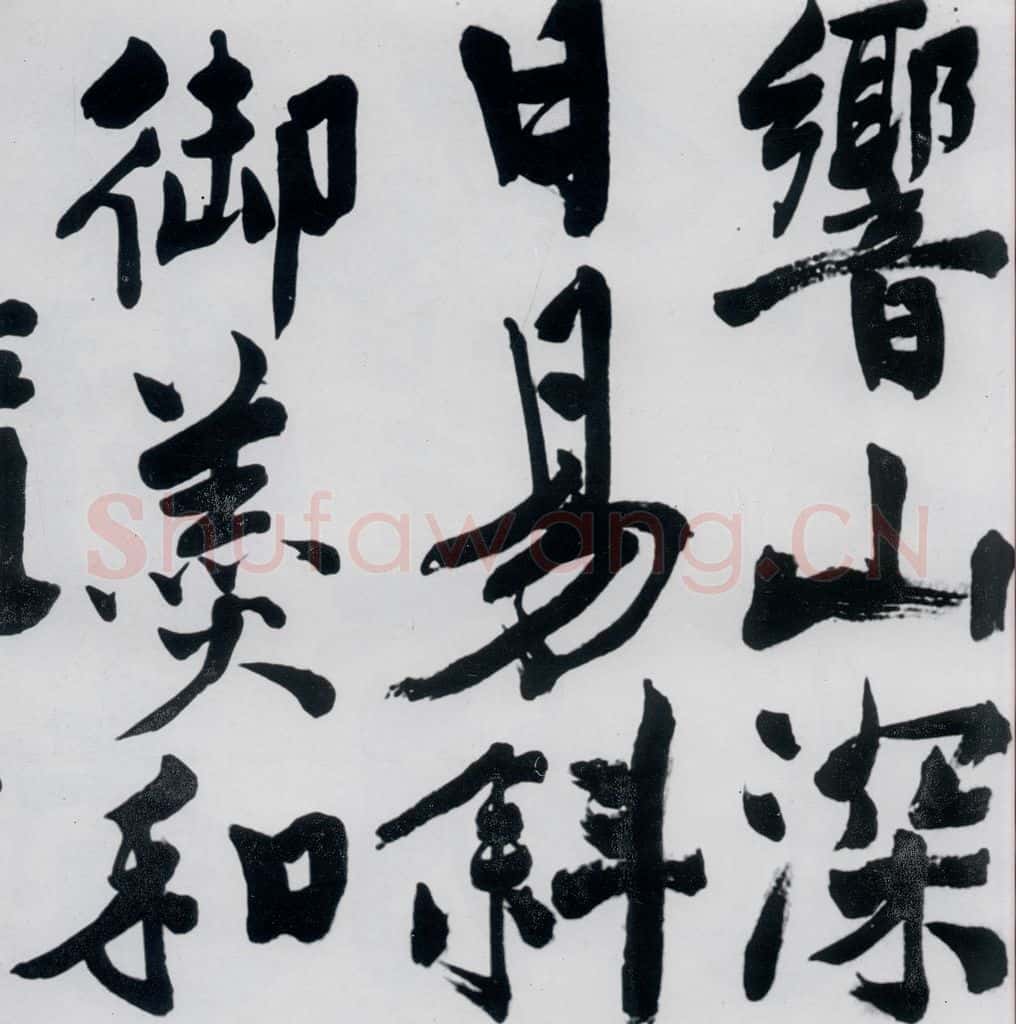 響山深
日易斜
御羹和
Shufawang.CN